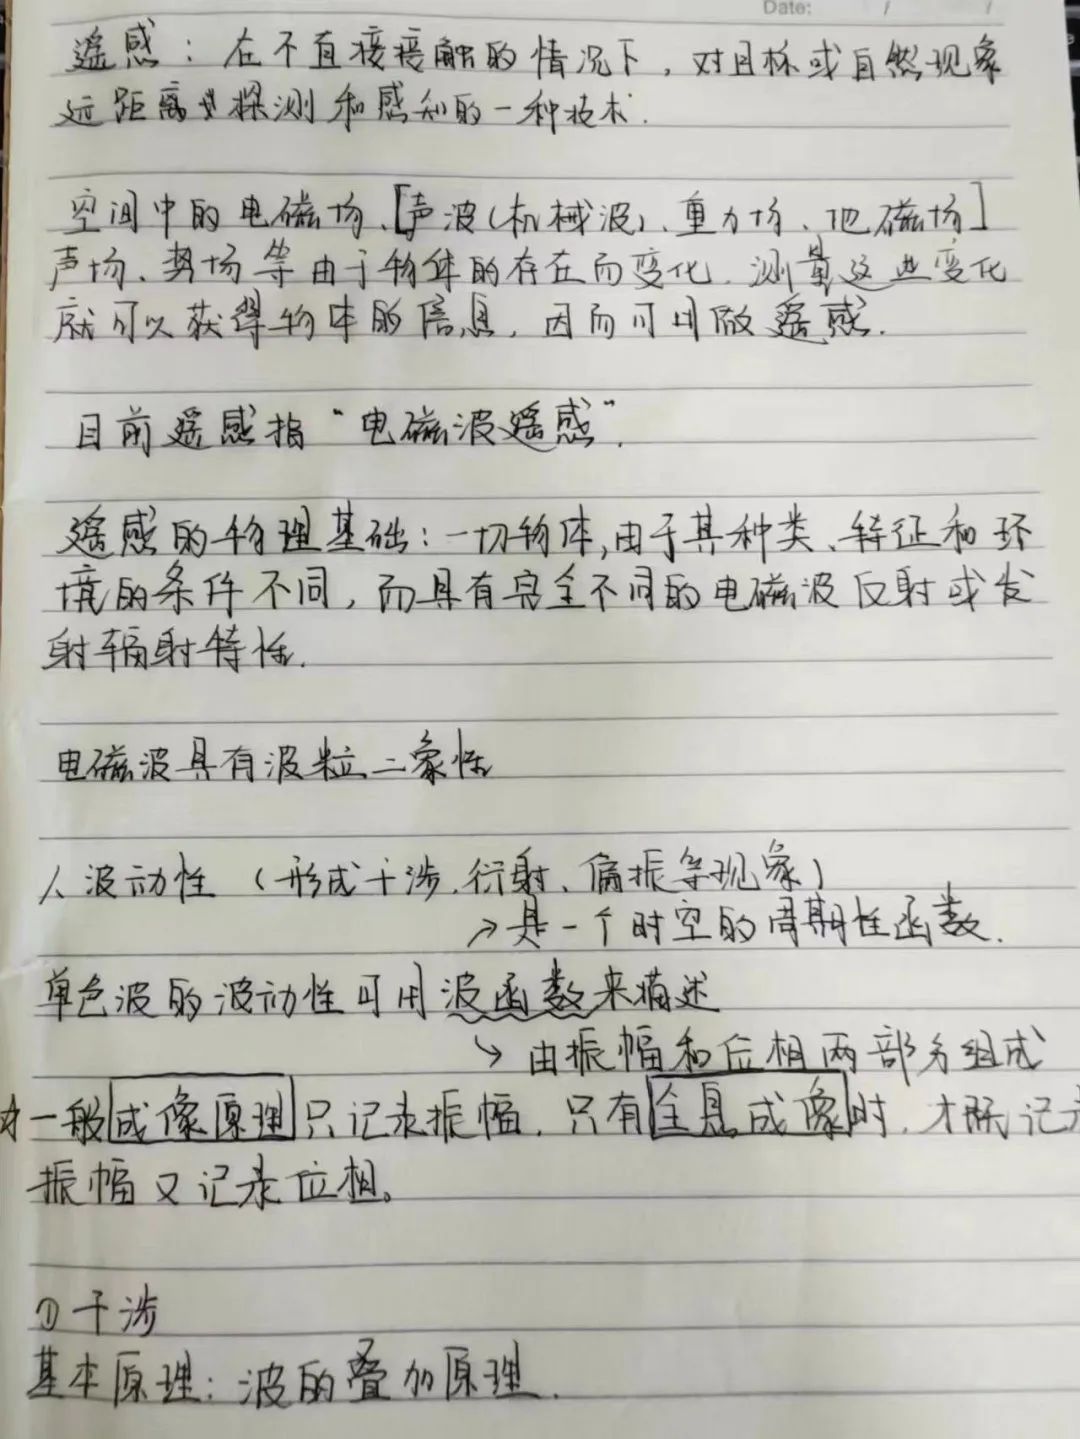 Date: / /
遥感：在不直接接触的情况下，对目标或自然现象
远距离探测和感知的一种技术.
空间中的电磁场、[声波(机械波)、重力场、地磁场]
声场、势场等由于物体的存在而变化.测量这些变化
就可以获得物体的信息，因而可用做遥感.
目前遥感指“电磁波遥感”.
遥感的物理基础：一切物体,由于其种类、特征和环
境的条件不同，而具有完全不同的电磁波反射或发
射辐射特性.
电磁波具有波粒二象性
1、波动性（形成干涉、衍射、偏振等现象）
↗是一个时空的周期性函数.
单色波的波动性可用波函数来描述
↘由振幅和位相两部分组成
☆一般成像原理只记录振幅，只有全息成像时，才既记录
振幅又记录位相。
①干涉
基本原理：波的叠加原理.